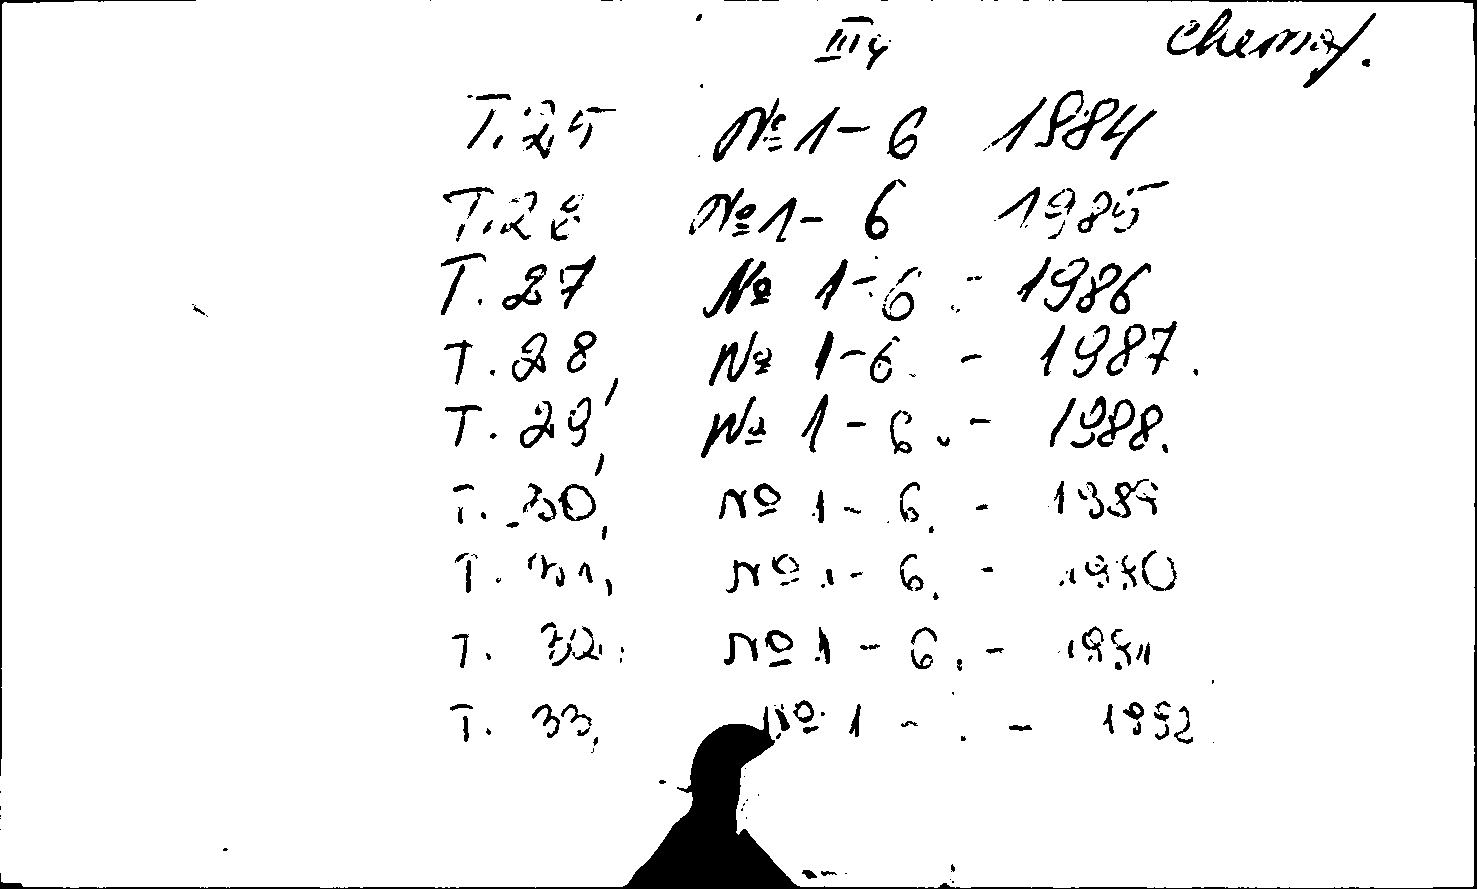 III4 chemy.
T. 25 № 1-6 1984
T. 26 № 1-6 1985
T. 27 № 1-6 - 1986
T. 28, № 1-6 - 1987.
T. 29, № 1-6. - 1988.
T. 30, № 1-6. - 1989
T. 31, № 1-6. - 1990
T. 32, № 1-6. - 1991
T. 33, № 1- . - 1992